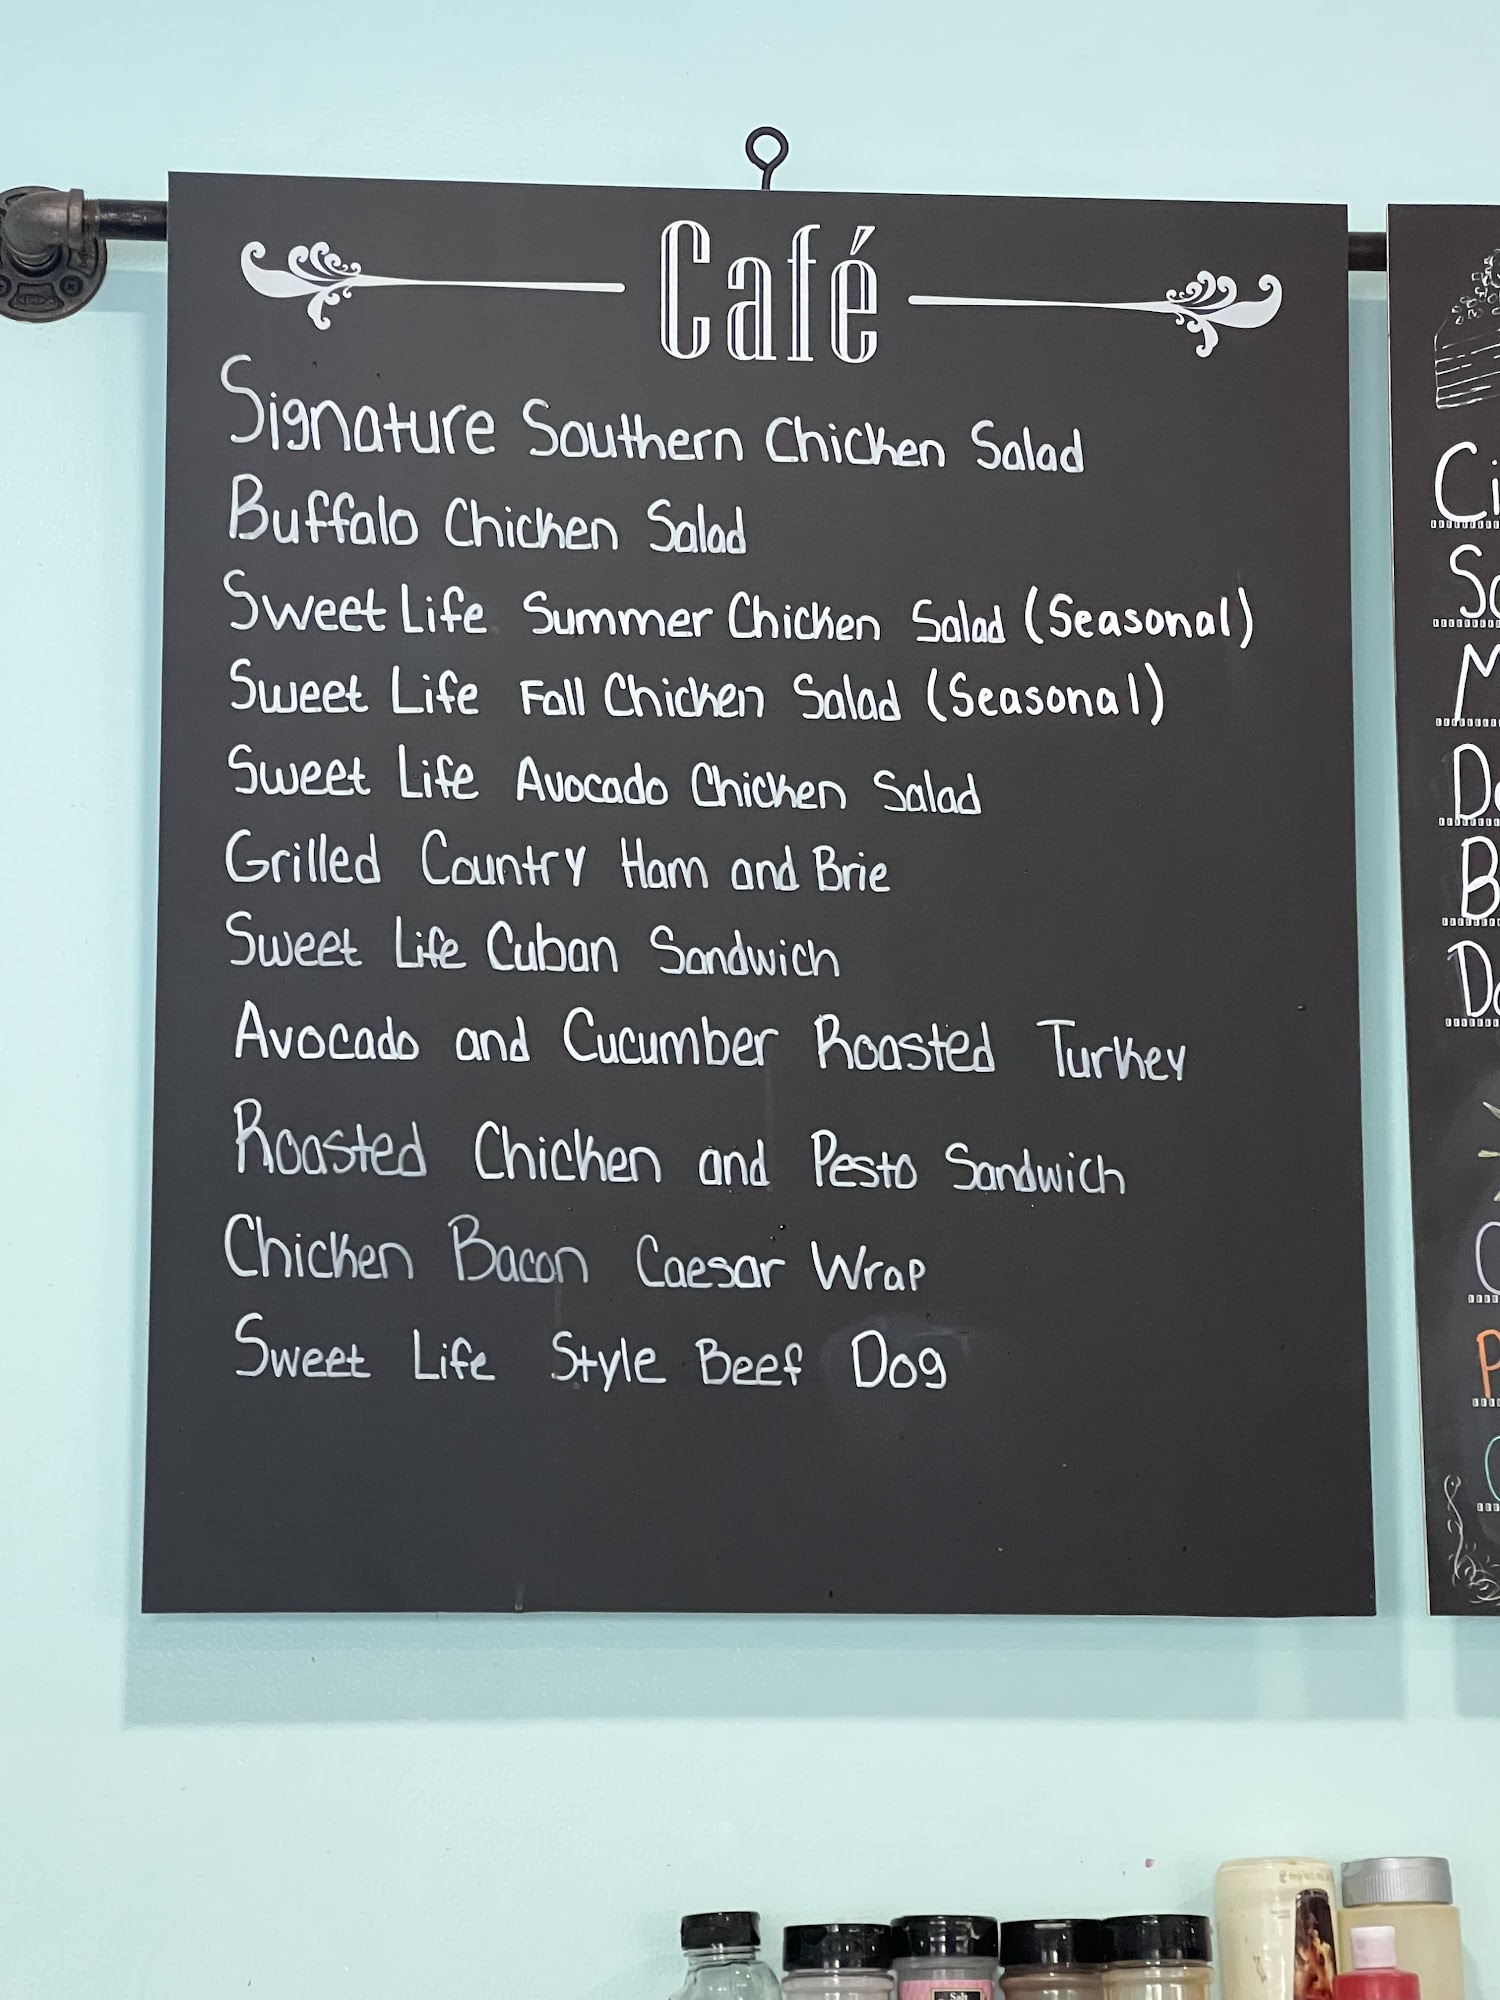 Café
Signature Southern Chicken Salad
Buffalo Chicken Salad
Sweet Life Summer Chicken Salad (Seasonal)
Sweet Life Fall Chicken Salad (Seasonal)
Sweet Life Avocado Chicken Salad
Grilled Country Ham and Brie
Sweet Life Cuban Sandwich
Avocado and Cucumber Roasted Turkey
Roasted Chicken and Pesto Sandwich
Chicken Bacon Caesar Wrap
Sweet Life Style Beef Dog
Salt